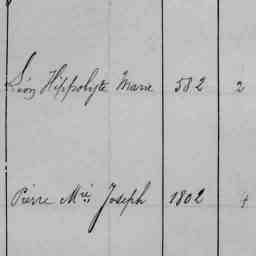 Léon Hippolyte Marie 582 2
Pierre Mie Joseph 1802 4